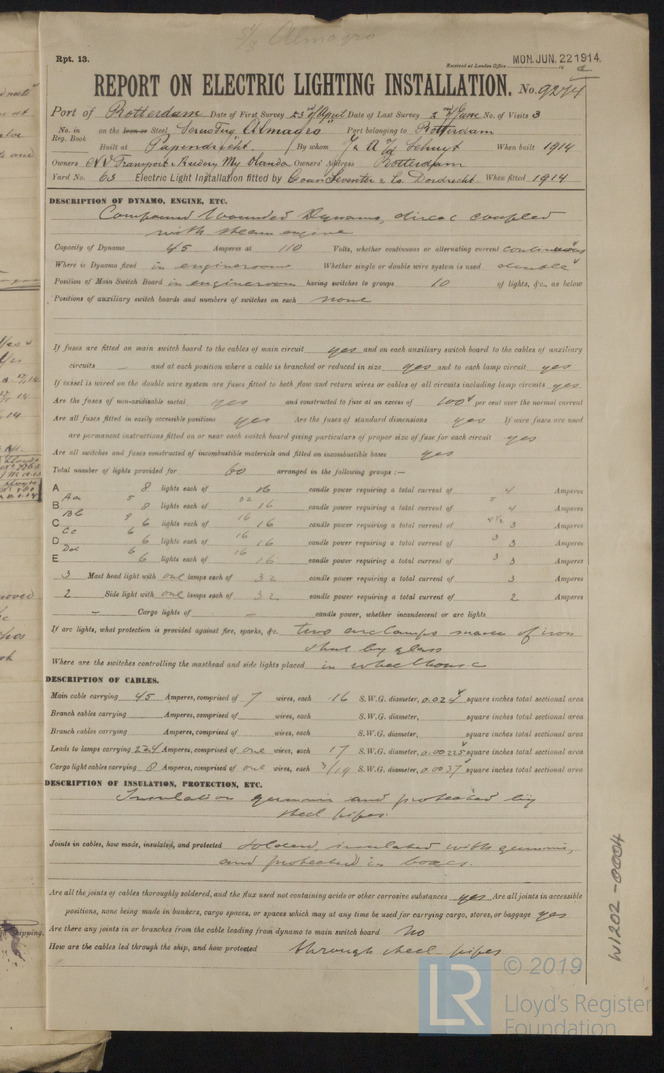 S/S Almagro
Rpt. 13.
Received at London Office MON. JUN. 22 1914.
REPORT ON ELECTRIC LIGHTING INSTALLATION. No. 9274
Port of Rotterdam Date of First Survey 23rd April Date of Last Survey 2nd June No. of Visits 3
No. in Reg. Book on the Iron or Steel Almagro Port belonging to Rotterdam
Built at Papendrecht By whom When built 1914
Owners NV Transport & Owners' Address Rotterdam
Yard No. 63 Electric Light Installation fitted by & Co. Dordrecht When fitted 1914
DESCRIPTION OF DYNAMO, ENGINE, ETC.
Compound Wounded Dynamo, direct coupled
with steam engine
Capacity of Dynamo 45 Amperes at 110 Volts, whether continuous or alternating current continuous
Where is Dynamo fixed in engineroom Whether single or double wire system is used double
Position of Main Switch Board in engineroom having switches to groups 10 of lights, &c., as below
Positions of auxiliary switch boards and numbers of switches on each none
If fuses are fitted on main switch board to the cables of main circuit yes and on each auxiliary switch board to the cables of auxiliary
circuits — and at each position where a cable is branched or reduced in size yes and to each lamp circuit yes
If vessel is wired on the double wire system are fuses fitted to both flow and return wires or cables of all circuits including lamp circuits yes
Are the fuses of non-oxidizable metal yes and constructed to fuse at an excess of 100 per cent over the normal current
Are all fuses fitted in easily accessible positions yes Are the fuses of standard dimensions yes If wire fuses are used
are permanent instructions fitted on or near each switch board giving particulars of proper size of fuse for each circuit yes
Are all switches and fuses constructed of incombustible materials and fitted on incombustible bases yes
Total number of lights provided for 60 arranged in the following groups :—
A 8 lights each of 16 candle power requiring a total current of 4 Amperes
Aa 5 32 5
B 8 lights each of 16 candle power requiring a total current of 4 Amperes
Bb 9 16 4½
C 6 lights each of 16 candle power requiring a total current of 3 Amperes
Cc 6 16 3
D 6 lights each of 16 candle power requiring a total current of 3 Amperes
Dd 6 16 3
E 6 lights each of 16 candle power requiring a total current of 3 Amperes
3 Mast head light with one lamps each of 32 candle power requiring a total current of 3 Amperes
2 Side light with one lamps each of 32 candle power requiring a total current of 2 Amperes
— Cargo lights of — candle power, whether incandescent or arc lights
If arc lights, what protection is provided against fire, sparks, &c. two arclamps made of iron
shut by glass
Where are the switches controlling the masthead and side lights placed in wheelhouse
DESCRIPTION OF CABLES.
Main cable carrying 45 Amperes, comprised of 7 wires, each 16 S.W.G. diameter, 0.024 square inches total sectional area
Branch cables carrying Amperes, comprised of wires, each S.W.G. diameter, square inches total sectional area
Branch cables carrying Amperes, comprised of wires, each S.W.G. diameter, square inches total sectional area
Leads to lamps carrying Amperes, comprised of one wires, each 17 S.W.G. diameter, 0.00225 square inches total sectional area
Cargo light cables carrying 8 Amperes, comprised of one wires, each 3/19 S.W.G. diameter, 0.0037 square inches total sectional area
DESCRIPTION OF INSULATION, PROTECTION, ETC.
Insulation and protected by
steel pipes.
Joints in cables, how made, insulated, and protected soldered, insulated with gummi,
and protected in boxes.
Are all the joints of cables thoroughly soldered, and the flux used not containing acids or other corrosive substances yes Are all joints in accessible
positions, none being made in bunkers, cargo spaces, or spaces which may at any time be used for carrying cargo, stores, or baggage yes
Are there any joints in or branches from the cable leading from dynamo to main switch board no
How are the cables led through the ship, and how protected through steel pipes
W1202-0004
© 2019
LR Lloyd's Register
Foundation